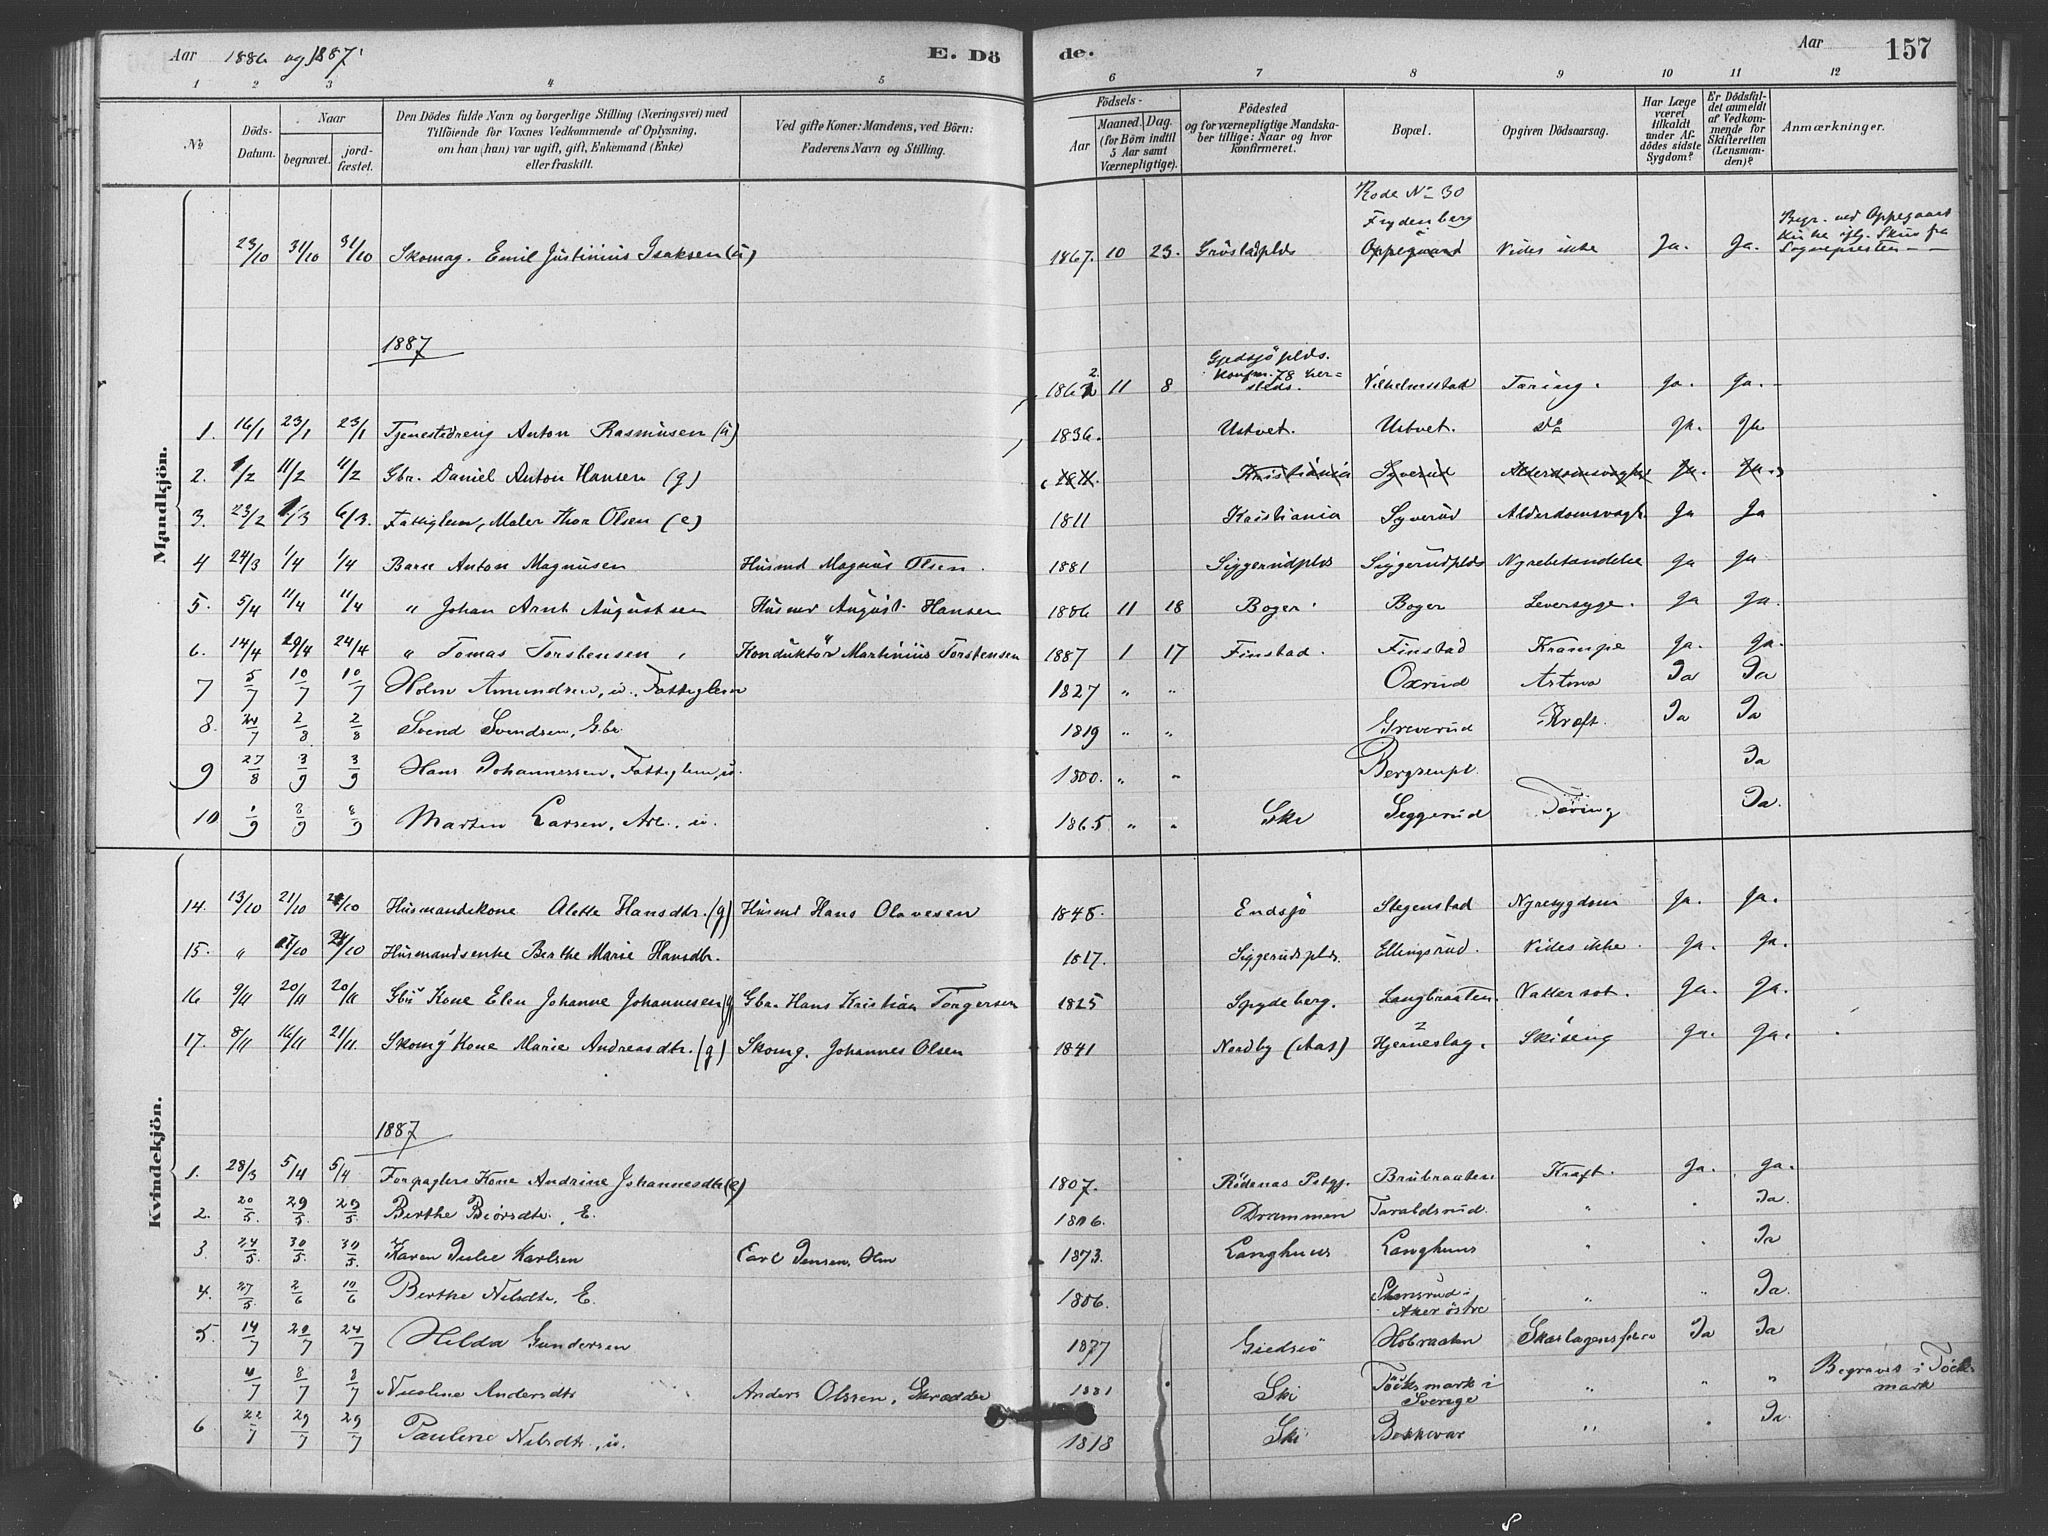 Aar 1886 og 1887. E. Dö de. Aar 157
1 2 3 4 5 6 7 8 9 10 11 12
No Döds-Datum. Naar begravet. jordfæstet. Den Dödes fulde Navn og borgerlige Stilling (Næringsvei) med Tilföiende for Voxnes Vedkommende af Oplysning, om han (hun) var ugift, gift, Enkemand (Enke) eller fraskilt. Ved gifte Koner: Mandens, ved Börn: Faderens Navn og Stilling. Födsels- Aar Maaned. Dag. (for Börn indtil 5 Aar samt Værnepligtige). Födested og for værnepligtige Mandskaber tillige: Naar og hvor konfirmeret. Bopæl. Opgiven Dödsaarsag. Har Læge været tilkaldt under Afdödes sidste Sygdom? Er Dödsfaldet anmeldt af Vedkommende for Skifteretten (Lensmanden)? Anmærkninger.
Mandkjön.
Rode No 30
Frydenberg
23/10 31/10 31/10 Skomag. Emil Justinius Isaksen (u) 1867. 10 23. Gröstadplds Oppegaard Vides ikke Ja. Ja. Begr. ved Oppegaard Kirke iflg. Skriv fra Sognepresten
1887
Gjedsjöplds. Konfirm. 78 hersteds.
1862 11 8 Vilhelmsstad Tæring. Ja. Ja.
1. 16/1 23/1 23/1 Tjenestedreng Anton Rasmusen (u) 1836. Ustvet. Ustvet. Do Ja. Ja
2. 1/2 11/2 11/2 Gbr. Daniel Anton Hansen (g) 1811. Kristiania Syverud Alderdomsvagh Ja. Ja.
3. 23/2 1/3 6/3. Fattiglem, Maler Thor Olsen (e) 1811 Kristiania Syverud Alderdomsvagh. Ja Ja
4 24/3 1/4 1/4 Barn Anton Magnusen Husmd Magnus Olsen. 1881 Siggerudplds Siggerudplds Nyrebetændelse Ja Ja
5. 5/4 11/4 11/4 " Johan Arnt Augustsen Husmd August Hansen 1886 11 18 Boger Boger Leversyge. Ja Ja.
6. 14/4 19/4 24/4 " Tomas Torstensen Konduktör Martinius Torstensen 1887 1 17 Finstad. Finstad Krampe Ja. Ja.
7 5/7 10/7 10/7 Holm Amundsen, u., Fattiglem 1827 " " Oxrud Astma Ja Ja
8. 24/7 2/8 2/8 Svend Svendsen, Gbr. 1819 " " Greverud Kræft. Ja Ja
9 27/8 3/9 3/9 Hans Johannessen, Fattiglem, u. 1800. " " Bergsenpl. Ja
10 1/9 8/9 8/9 Marten Larsen, Arb., u. 1865 " " Ski Siggerud Tæring Ja.
Kvindekjön.
14. 13/10 21/10 21/10 Husmandskone Alette Hansdtr. (g) Husmd Hans Olavesen 1845. Endsjö Stegenstad Nyresygdom Ja. Ja.
15. " 17/10 24/10 Husmandsenke Berthe Marie Hansdtr. 1817. Siggerudsplds. Ellingsrud. Vides ikke. Ja. Ja.
16 9/11 20/11 20/11 Gbrs Kone Elen Johanne Johannesen (g) Gbr. Hans Kristian Torgersen 1825 Spydeberg. Langbraaten. Vattersot. Ja. Ja.
17. 8/11 16/11 21/11 Skomg Kone Marie Andreasdtr. (g) Skomg. Johannes Olsen 1841 Nordby (Aas) Hjerneslag. Ja. Ja.
1887
1. 28/3 5/4 5/4 Forpagters Kone Andrine Johannesdtr (e) 1807. Rödenæs Pstgj. Brubraaten. Kræft. Ja. Ja.
2. 20/5. 29/5. 29/5 Berthe Biörsdtr., E. 1806. Drammen Taraldsrud. " " Ja
3. 24/5. 30/5 30/5. Karen Julie Karlsen Carl Jensen, Hm 1873. Langhuus Langhuus " " Ja
4. 27/5. 2/6 10/6 Berthe Nilsdtr, E. 1806. Stensrud i Aker östre " " Ja
5. 14/7 20/7 24/7 Hilda Gundersen 1877 Giedsiö Hobraaten Skarlagensfeber Ja Ja
4/7 8/7 8/7 Nicoline Andersdtr Anders Olssen, Skrædder 1881 Ski Töcksmark i Sverige " " " Begravet i Töcksmark
6 22/7 29/7 29/7 Pauline Nilsdtr., u. 1818 Ski Bekkevar " " Ja.